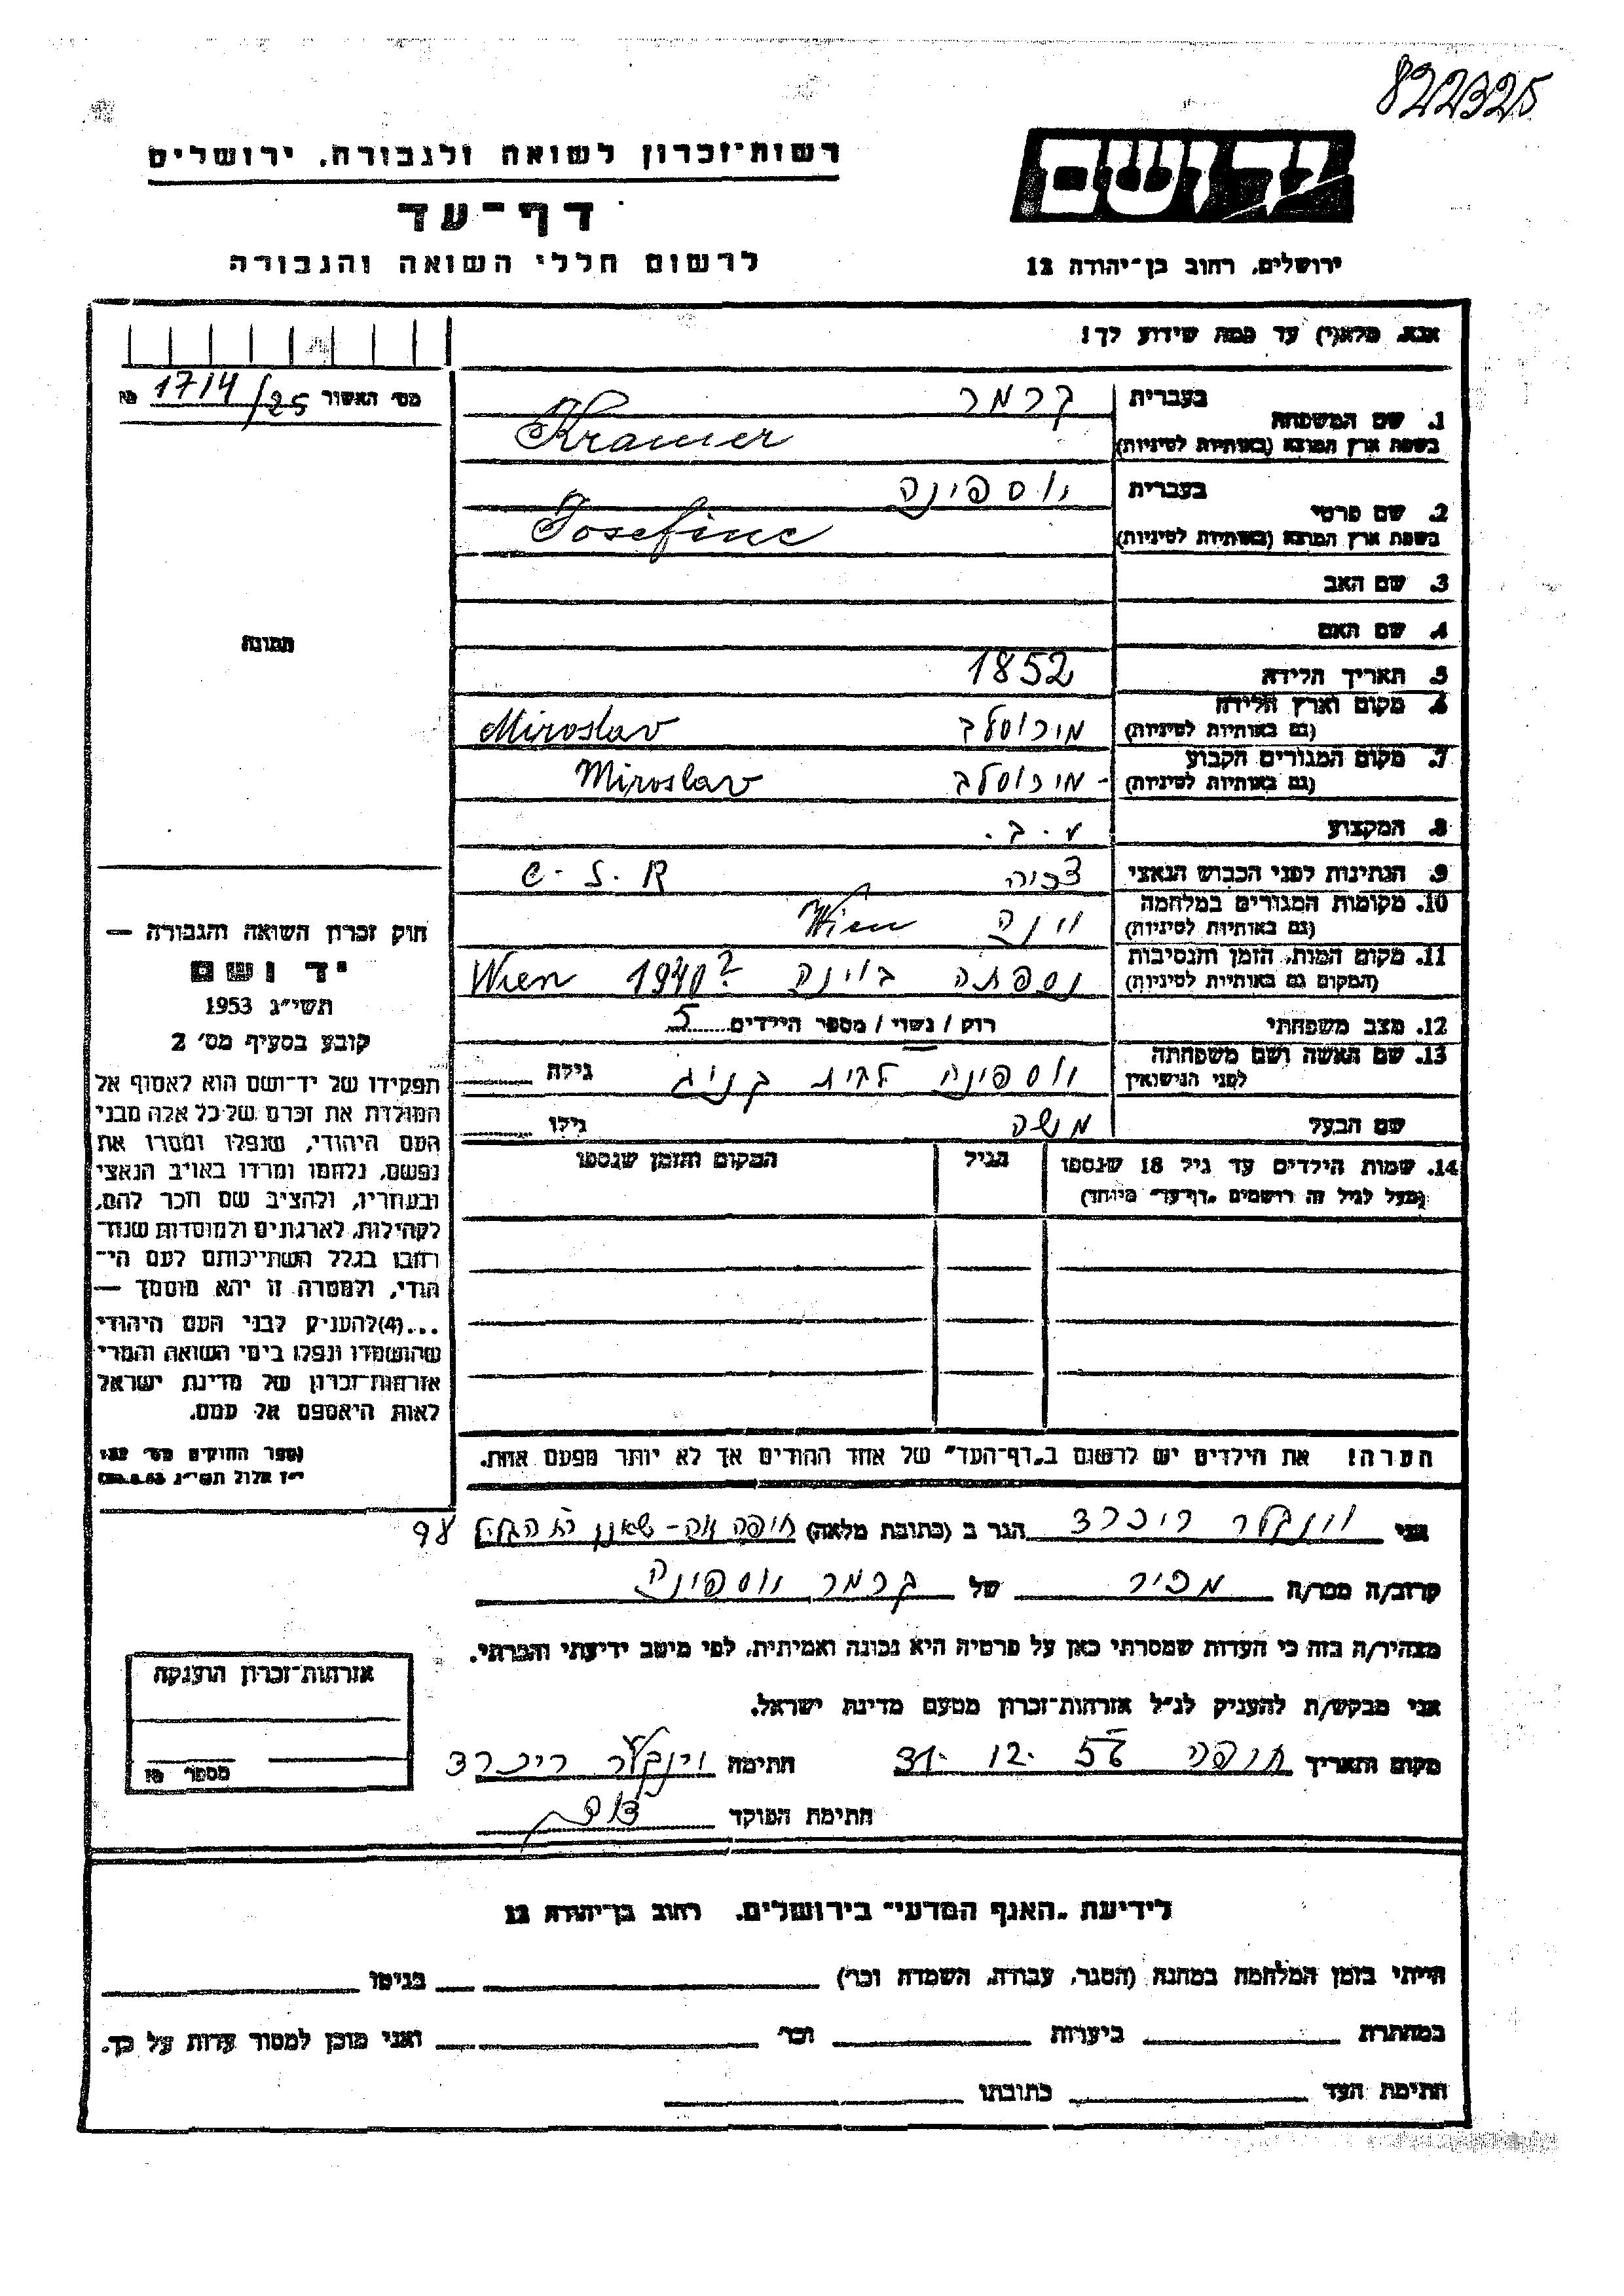 822325
יד ושם
רשות־זכרון לשואה ולגבורה, ירושלים
דף־עד
לרשום חללי השואה והגבורה
ירושלים, רחוב בן־יהודה 12
אנא, מלא(י) עד כמה שידוע לך!
מס׳ האשור 1714/25
1. שם המשפחה בעברית קרמר
בשפת ארץ המוצא (באותיות לטיניות) Kramer
2. שם פרטי בעברית יוספינה
בשפת ארץ המוצא (באותיות לטיניות) Josefine
3. שם האב
4. שם האם
5. תאריך הלידה 1852
6. מקום וארץ הלידה (גם באותיות לטיניות) מירוסלב Miroslav
7. מקום המגורים הקבוע (גם באותיות לטיניות) מירוסלב Miroslav
8. המקצוע ע.ב.
9. הנתינות לפני הכבוש הנאצי צכיה C.S.R
10. מקומות המגורים במלחמה (גם באותיות לטיניות) וינה Wien
11. מקום המות, הזמן והנסיבות (המקום גם באותיות לטיניות) נספתה בוינה 1940? Wien
12. מצב משפחתי רוק / נשוי / מספר הילדים 5
13. שם האשה ושם משפחתה לפני הנישואין יוספינה לבית קניג גילה
שם הבעל משה גילו
14. שמות הילדים עד גיל 18 שנספו הגיל המקום והזמן שנספו
(מעל לגיל זה רושמים „דף־עד״ מיוחד)
תמונה
חוק זכרון השואה והגבורה —
יד ושם
תשי״ג 1953
קובע בסעיף מס׳ 2
תפקידו של יד־ושם הוא לאסוף אל
המולדת את זכרם של כל אלה מבני
העם היהודי, שנפלו ומסרו את
נפשם, נלחמו ומרדו באויב הנאצי
ובעוזריו, ולהציב שם וזכר להם,
לקהילות, לארגונים ולמוסדות שנח־
רחבו בגלל השתייכותם לעם הי־
הודי, ולמטרה זו יהא מוסמך —
...(4)להעניק לבני העם היהודי
שהושמדו ונפלו בימי השואה והמרי
אזרחות־זכרון של מדינת ישראל
לאות היאספם אל עמם.
(ספר החוקים מס׳ 132
י״ז אלול תשי״ג 28.8.53)
הערה! את הילדים יש לרשום ב„דף־העד״ של אחד ההורים אך לא יותר מפעם אחת.
אני וינקלר ריכרד הגר ב (כתובת מלאה) חיפה נוה־שאנן רח הגליל 98
קרוב/ה מכר/ה מכיר של קרמר יוספינה
מצהיר/ה בזה כי העדות שמסרתי כאן על פרטיה היא נכונה ואמיתית, לפי מיטב ידיעתי והכרתי.
אני מבקש/ת להעניק לנ״ל אזרחות־זכרון מטעם מדינת ישראל.
מקום ותאריך חיפה 31.12.56 חתימה וינקלר ריכרד
חתימת הפוקד
אזרחות־זכרון הוענקה
מספר
לידיעת „האגף המדעי״ בירושלים, רחוב בן־יהודה 12
הייתי בזמן המלחמה במחנה (הסגר, עבודה, השמדה וכר׳) בגיטו
במחתרת ביערות וכר׳ ואני מוכן למסור עדות על כך.
חתימת העד כתובתו